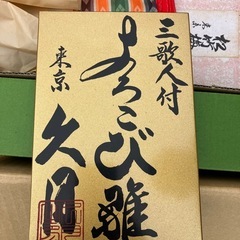 三歌人付
よろこび雛
東京 久月